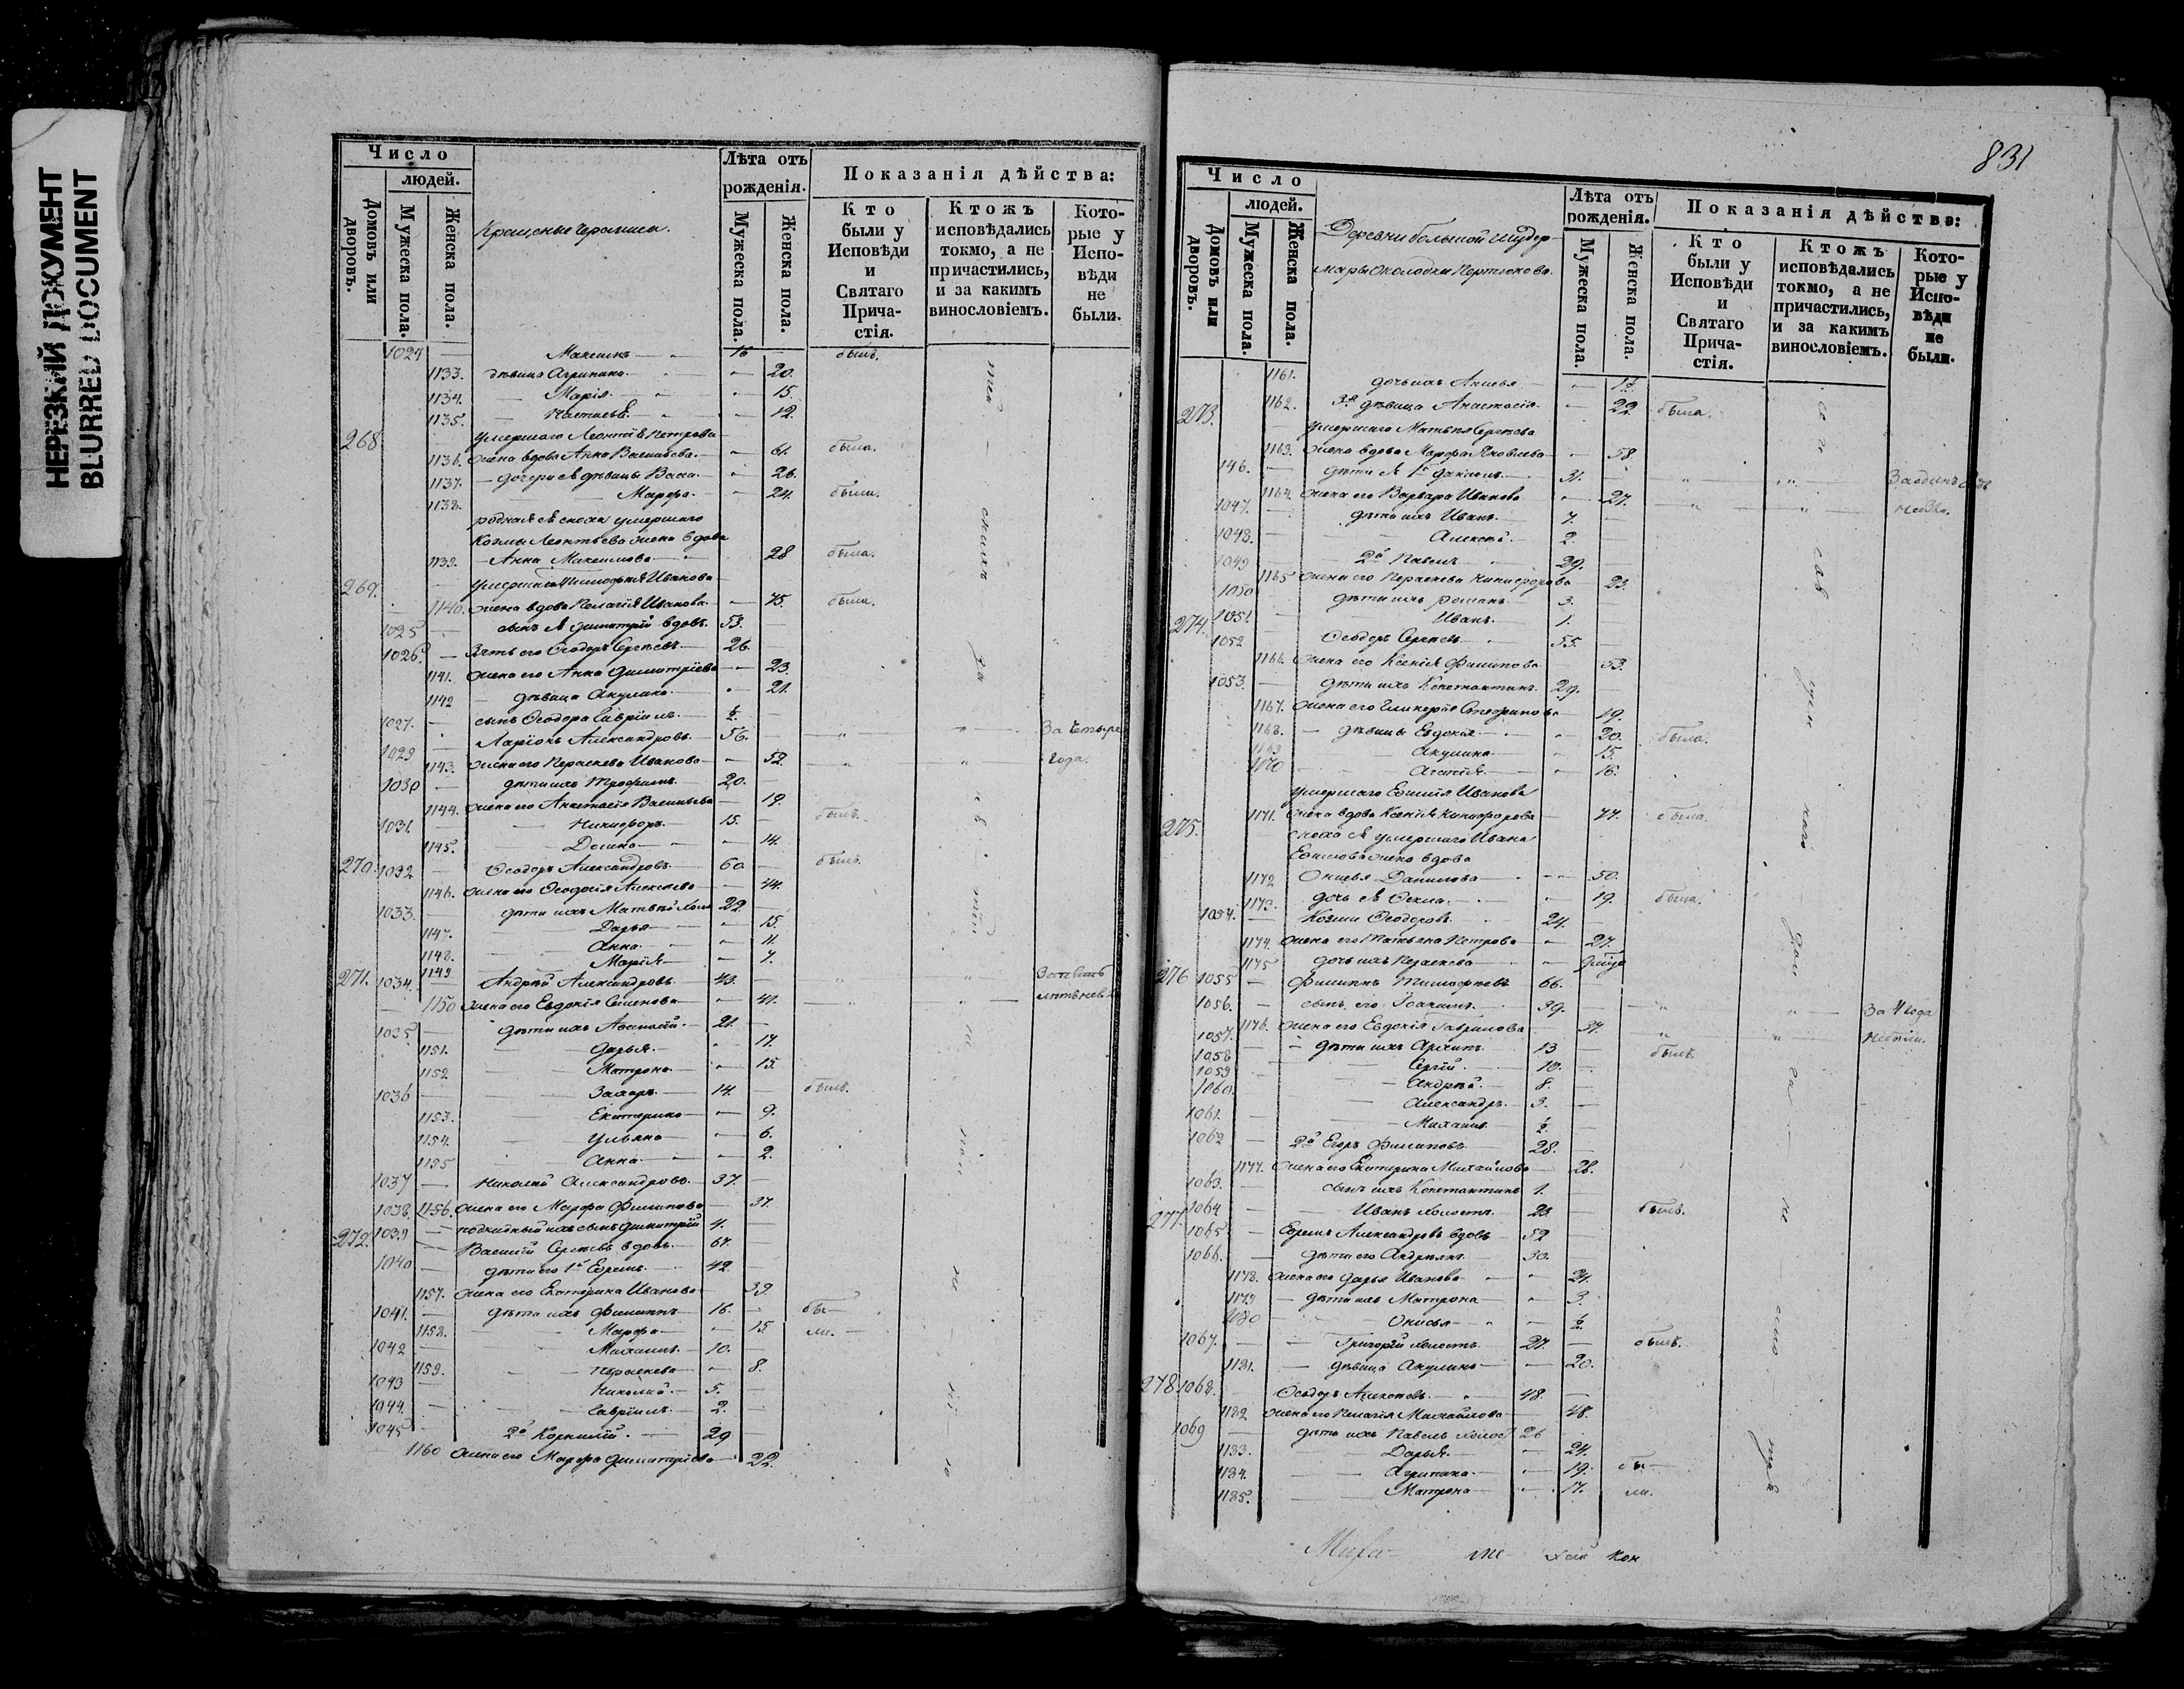 НЕРЕЗКИЙ ДОКУМЕНТ
BLURRED DOCUMENT
Число
людей.
Домовъ или дворовъ.
Мужеска пола.
Женска пола.
Крещеные Чуваши.
Лѣта отъ рожденія.
Мужеска пола.
Женска пола.
Показанія дѣйства:
Кто были у Исповѣди и Святаго Причастія.
Ктожъ исповѣдались токмо, а не причастились, и за какимъ винословіемъ.
Которые у Исповѣди не были.
1024 — Максимъ — 16 — былъ.
1133. дѣвица Агрипина — 20.
1134. — Марія — 15.
1135. — Настасья — 12.
268 умершаго Леонтія Петрова
1136. жена вдова Анна Васильева — 61. была.
1137. — дочери ея дѣвицы Васса — 26.
1138. Марфа — 24. были.
родная ея сноха умершаго
Козмы Леонтьева жена вдова
1139. — Анна Максимова — 28 была.
269. умершаго Тимофея Иванова
1140. жена вдова Пелагія Иванова — 75. была.
1025 — сынъ ея Димитрій вдовъ. 53. —
1026. — Зять его Ѳеодоръ Сергѣевъ — 26.
1141. жена его Анна Димитріева — 23.
1142 — дѣвица Акулина — 21.
1027. — сынъ Ѳеодора Гавріилъ — ½. —
Ларіонъ Александровъ — 56. За четыре
1029 1143. жена его Параскева Иванова — 52. года.
1030 — дѣти ихъ Трофимъ — 20.
1144. жена его Анастасія Васильева — 19.
1031. — Никифоръ — 15. — былъ.
1145. — Домна — 14.
270. 1032 — Ѳеодоръ Александровъ — 60 — былъ.
1146. жена его Ѳеодосія Алексѣева — 44.
1033. — дѣти ихъ Матвѣй холо 22. —
1147. — Дарья — 15.
1148. — Анна — 11.
1149 — Марія — 7.
271. 1034. — Андрей Александровъ — 43. —
1150 жена его Евдокія Семенова — 41.
1035 — дѣти ихъ Алексѣй — 21. —
1151. — Дарья. — 17.
1152 — Матрона — 15.
1036 — Захаръ — 14. — былъ.
1153. Екатерина — 9.
1154. — Ульяна — 6.
1155 Анна — 2.
1037 — Николай Александровъ — 37. —
1038. 1156. жена его Марфа Филипова — 37.
1039 — подкидный ихъ сынъ Димитрій 4.
272. — Василій Сергѣевъ вдовъ — 67.
1040 — дѣти его 1й Ефремъ — 42.
1157. жена его Екатерина Иванова — 39.
1041. — дѣти ихъ Филиппъ — 16. — бы-
1158. — Марфа — 15 ли.
1042 — Михаилъ — 10.
1159. — Параскева — 8.
1043 — Николай — 5. —
1044. — Гавріилъ — 2. —
1045 — 2й Корнилій — 29
1160 жена его Марфа Димитріева — 22.
831
Число
людей.
Домовъ или дворовъ.
Мужеска пола.
Женска пола.
Деревни большой Шудер-
мары околодки Портякова.
Лѣта отъ рожденія.
Мужеска пола.
Женска пола.
Показанія дѣйства:
Кто были у Исповѣди и Святаго Причастія.
Ктожъ исповѣдались токмо, а не причастились, и за какимъ винословіемъ.
Которые у Исповѣди не были.
1161. дочь ихъ Анисья —
1162. 3я дѣвица Анастасія — 22. была.
273. Умершаго Матвѣя Сергѣева
1163. жена вдова Марфа Яковлева — 58
146. — дѣти ея 1й Даніилъ — 31. За одинъ годъ
1164. жена его Варвара Иванова — 27. не
1047. — дѣти ихъ Иванъ — 7. —
1048. — Алексѣй — 2. —
1049 — 2й Павелъ — 29.
1165 жена его Параскева Никифорова 23.
1050 — дѣти ихъ Романъ — 3. —
274. 1051 — Иванъ — 1. —
1052 — Ѳеодоръ Сергѣевъ — 55. —
1166. жена его Ксенія Филипова — 53.
1053. — дѣти ихъ Константинъ — 29. —
1167. жена его Гликерія — 19.
1168. — дѣвицы Евдокія — 20. была.
1169 Акулина — 15.
1170 Агафія — 16.
умершаго Ефимія Иванова
275. 1171. жена вдова Ксенія Никифорова — 77. была.
сноха ея умершаго Ивана
Ефимова жена вдова
1172 Онисья Данилова — 50.
1173. дочь ея Ѳекла — 19. была.
1054. — Козма Ѳеодоровъ — 24.
1174. жена его Татьяна Петрова — 27.
1175 дочь ихъ Параскева —
276 1055 — Филиппъ Тимофеевъ 66.
1056. — сынъ его Іоакимъ — 39. — За 4 года
1176. жена его Евдокія Гаврилова — 37. Не были.
1057. — дѣти ихъ Архипъ — 13 — былъ.
1058 — Сергій — 10. —
1059 — Андрей — 8. —
1060. — Александръ — 3. —
1061. — Михаилъ — ½. —
1062 — 2й Егоръ Филиповъ — 28. —
1177. жена его Екатерина Михайлова — 28.
1063. — сынъ ихъ Константинъ 1. —
1064 — Иванъ холостъ — 23 — былъ.
277. 1065 — Ефремъ Александровъ вдовъ — 52 —
1066. — дѣти его Андреянъ — 30.
1178. жена его Дарья Иванова — 24.
1179 — дѣти ихъ Матрона — 3.
1180 Онисья — ½.
1067. — Григорій холостъ — 27. — былъ.
1181. — дѣвица Акулина — 20.
278. 1068. Ѳеодоръ Алексѣевъ — 48. —
1182 жена его Пелагія Михайлова — 48.
1069 — дѣти ихъ Павелъ холост 26
1183. Дарья — 24.
1184. Агрипина — 19. бы-
1185. Матрона — 17. ли.